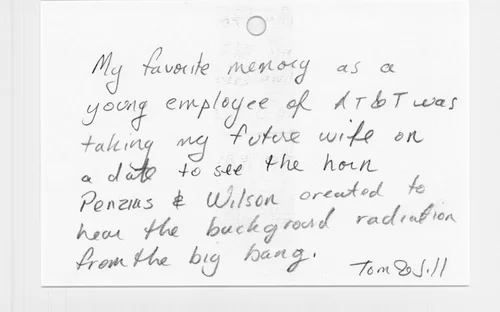 My favorite memory as a
young employee of AT&T was
taking my future wife on
a date to see the horn
Penzias & Wilson created to
hear the backgroud radiation
from the big bang.
Tom & Jill